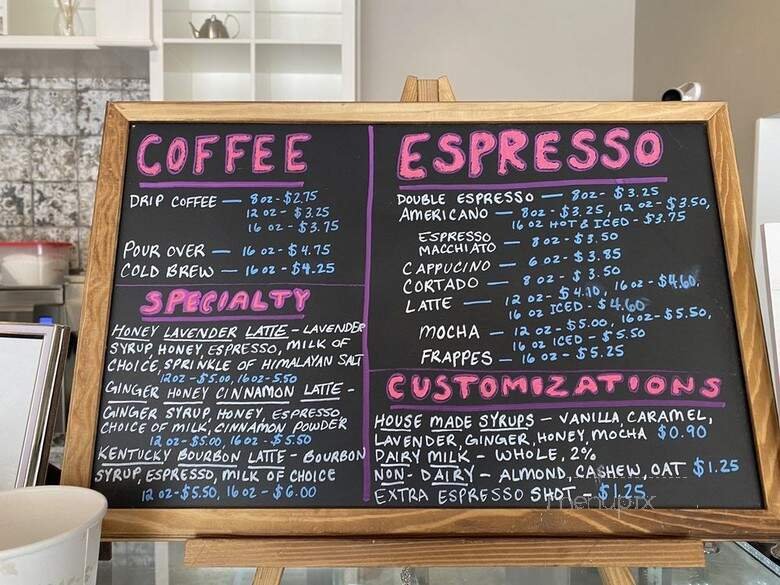 COFFEE
DRIP COFFEE — 8 oz - $2.75
12 oz - $3.25
16 oz - $3.75
POUR OVER — 16 oz - $4.75
COLD BREW — 16 oz - $4.25
SPECIALTY
HONEY LAVENDER LATTE - LAVENDER
SYRUP, HONEY, ESPRESSO, MILK OF
CHOICE, SPRINKLE OF HIMALAYAN SALT
12 oz - $5.00, 16 oz - 5.50
GINGER HONEY CINNAMON LATTE -
GINGER SYRUP, HONEY, ESPRESSO,
CHOICE OF MILK, CINNAMON POWDER
12 oz - $5.00, 16 oz - $5.50
KENTUCKY BOURBON LATTE - BOURBON
SYRUP, ESPRESSO, MILK OF CHOICE
12 oz - $5.50, 16 oz - $6.00
ESPRESSO
DOUBLE ESPRESSO — 8 oz - $3.25
AMERICANO — 8 oz - $3.25, 12 oz - $3.50,
16 oz HOT & ICED - $3.75
ESPRESSO
MACCHIATO — 8 oz - $3.50
CAPPUCINO — 6 oz - $3.85
CORTADO — 8 oz - $3.50
LATTE — 12 oz - $4.10, 16 oz - $4.60,
16 oz ICED - $4.60
MOCHA — 12 oz - $5.00, 16 oz - $5.50,
16 oz ICED - $5.50
FRAPPES — 16 oz - $5.25
CUSTOMIZATIONS
HOUSE MADE SYRUPS - VANILLA, CARAMEL,
LAVENDER, GINGER, HONEY, MOCHA $0.90
DAIRY MILK - WHOLE, 2%
NON-DAIRY - ALMOND, CASHEW, OAT $1.25
EXTRA ESPRESSO SHOT - $1.25
menupix